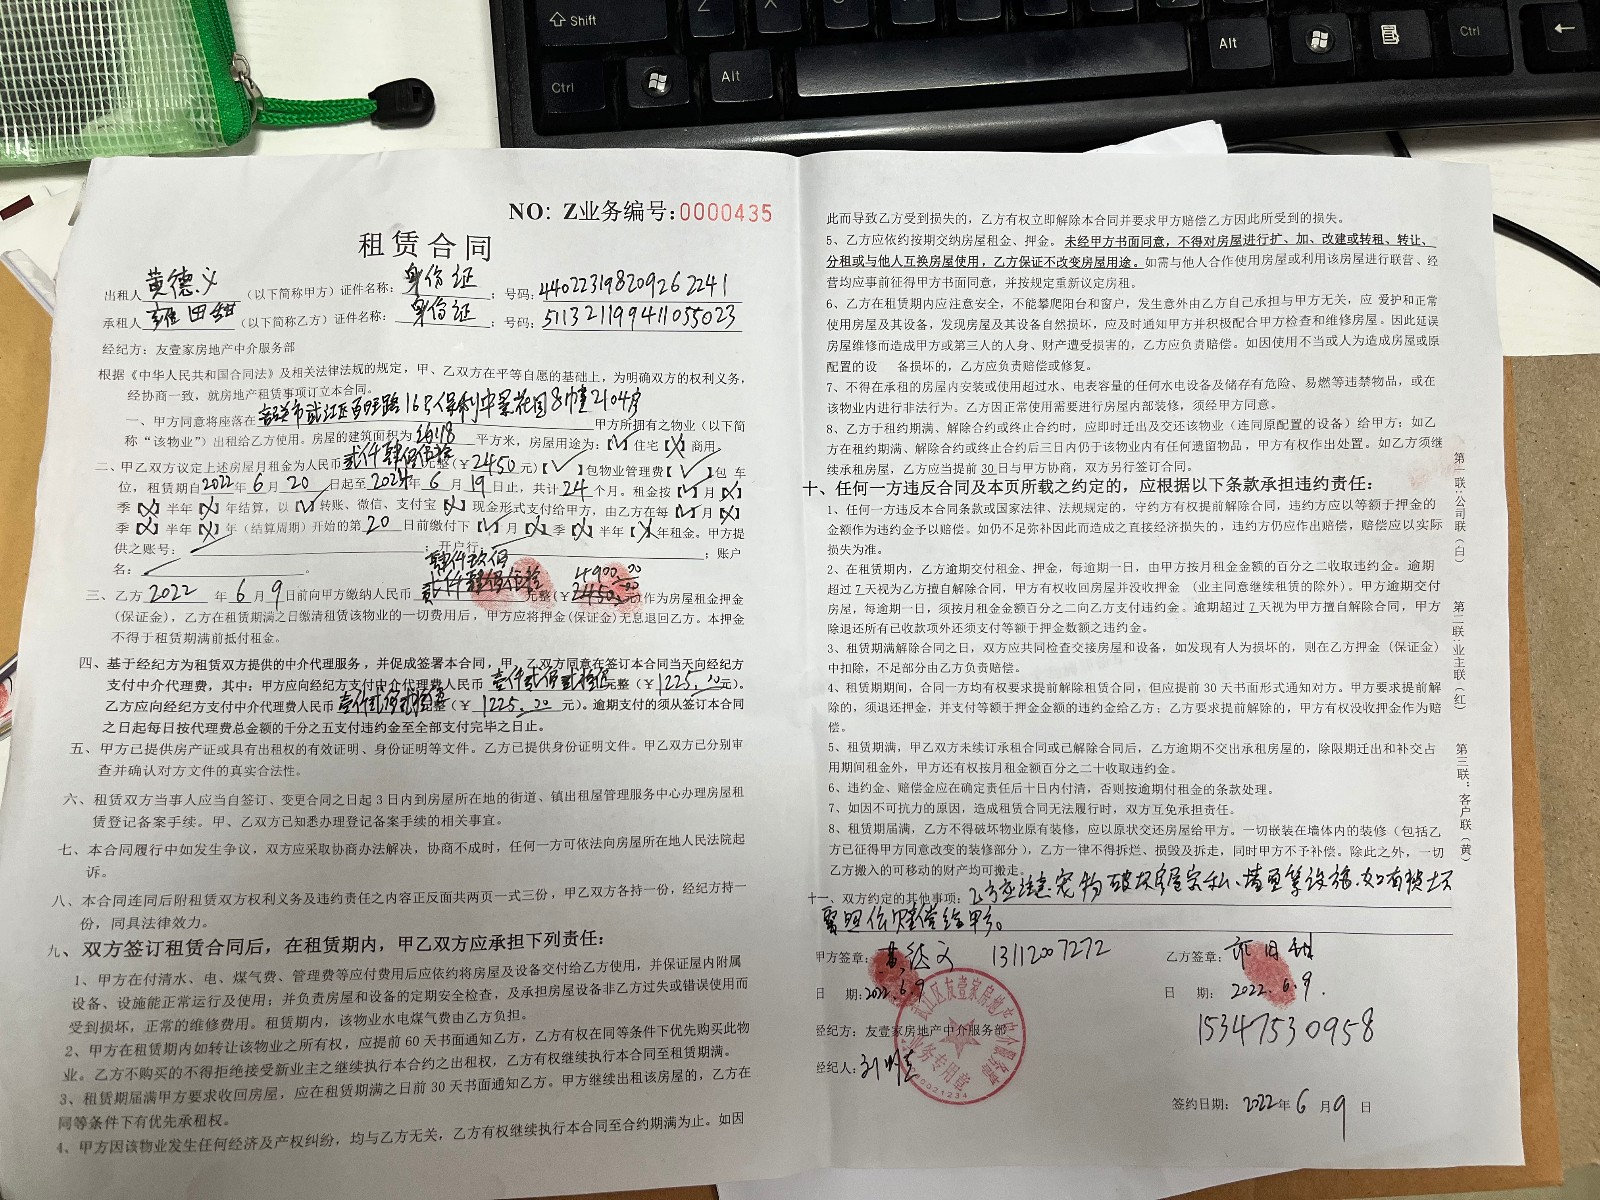 Shift
Z
X
Ctrl
Alt
Alt
Ctrl
NO: Z业务编号:0000435
租赁合同
出租人 黄德义 (以下简称甲方) 证件名称: 身份证 ; 号码: 440223198209262241
承租人 田甜 (以下简称乙方) 证件名称: 身份证 ; 号码: 511321199411055023
经纪方: 友壹家房地产中介服务部
根据《中华人民共和国合同法》及相关法律法规的规定，甲、乙双方在平等自愿的基础上，为明确双方的权利义务，
经协商一致，就房地产租赁事项订立本合同。
一、甲方同意将座落在 韶关市武江区百旺路16号保利中景花园8幢2104房 甲方所拥有之物业（以下简
称“该物业”）出租给乙方使用。房屋的建筑面积为 118 平方米，房屋用途为:【√】住宅【X】商用。
二、甲乙双方议定上述房屋月租金为人民币 贰仟肆佰伍拾 元整(￥2450元)【√】包物业管理费【√】包 车
位，租赁期自2022年 6 月 20 日起至2024年 6 月 19 日止，共计 24 个月。租金按【√】月【X】
季【X】半年【X】年结算，以【√】转账、微信、支付宝【X】现金形式支付给甲方，由乙方在每【√】月【X】
季【X】半年【X】年（结算周期）开始的第 20 日前缴付下【√】月【X】季【X】半年【X】年租金。甲方提
供之账号: ; 开户行: ; 账户
名: 。
肆仟玖佰 4900.00
三、乙方 2022 年 6 月 9 日前向甲方缴纳人民币 贰仟肆佰伍拾 元整(￥ 2450.00 元)作为房屋租金押金
(保证金)，乙方在租赁期满之日缴清租赁该物业的一切费用后，甲方应将押金(保证金)无息退回乙方。本押金
不得于租赁期满前抵付租金。
四、基于经纪方为租赁双方提供的中介代理服务，并促成签署本合同，甲、乙双方同意在签订本合同当天向经纪方
支付中介代理费，其中: 甲方应向经纪方支付中介代理费人民币 壹仟贰佰贰拾伍 元整(￥ 1225.00元)。
乙方应向经纪方支付中介代理费人民币 壹仟贰佰贰拾伍 元整(￥ 1225.00 元)。逾期支付的须从签订本合同
之日起每日按代理费总金额的千分之五支付违约金至全部支付完毕之日止。
五、甲方已提供房产证或具有出租权的有效证明、身份证明等文件。乙方已提供身份证明文件。甲乙双方已分别审
查并确认对方文件的真实合法性。
六、租赁双方当事人应当自签订、变更合同之日起 3 日内到房屋所在地的街道、镇出租屋管理服务中心办理房屋租
赁登记备案手续。甲、乙双方已知悉办理登记备案手续的相关事宜。
七、本合同履行中如发生争议，双方应采取协商办法解决，协商不成时，任何一方可依法向房屋所在地人民法院起
诉。
八、本合同连同后附租赁双方权利义务及违约责任之内容正反面共两页一式三份，甲乙双方各持一份，经纪方持一
份，同具法律效力。
九、双方签订租赁合同后，在租赁期内，甲乙双方应承担下列责任:
1、甲方在付清水、电、煤气费、管理费等应付费用后应依约将房屋及设备交付给乙方使用，并保证屋内附属
设备、设施能正常运行及使用；并负责房屋和设备的定期安全检查，及承担房屋设备非乙方过失或错误使用而
受到损坏，正常的维修费用。租赁期内，该物业水电煤气费由乙方负担。
2、甲方在租赁期内如转让该物业之所有权，应提前 60 天书面通知乙方，乙方有权在同等条件下优先购买此物
业。乙方不购买的不得拒绝接受新业主之继续执行本合约之出租权，乙方有权继续执行本合同至租赁期满。
3、租赁期届满甲方要求收回房屋，应在租赁期满之日前 30 天书面通知乙方。甲方继续出租该房屋的，乙方在
同等条件下有优先承租权。
4、甲方因该物业发生任何经济及产权纠纷，均与乙方无关，乙方有权继续执行本合同至合约期满为止。如因
此而导致乙方受到损失的，乙方有权立即解除本合同并要求甲方赔偿乙方因此所受到的损失。
5、乙方应依约按期交纳房屋租金、押金。未经甲方书面同意，不得对房屋进行扩、加、改建或转租、转让、
分租或与他人互换房屋使用，乙方保证不改变房屋用途。如需与他人合作使用房屋或利用该房屋进行联营、经
营均应事前征得甲方书面同意，并按规定重新议定房租。
6、乙方在租赁期内应注意安全，不能攀爬阳台和窗户，发生意外由乙方自己承担与甲方无关，应 爱护和正常
使用房屋及其设备，发现房屋及其设备自然损坏，应及时通知甲方并积极配合甲方检查和维修房屋。因此延误
房屋维修而造成甲方或第三人的人身、财产遭受损害的，乙方应负责赔偿。如因使用不当或人为造成房屋或原
配置的设 备损坏的，乙方应负责赔偿或修复。
7、不得在承租的房屋内安装或使用超过水、电表容量的任何水电设备及储存有危险、易燃等违禁物品，或在
该物业内进行非法行为。乙方因正常使用需要进行房屋内部装修，须经甲方同意。
8、乙方于租约期满、解除合约或终止合约时，应即时迁出及交还该物业（连同原配置的设备）给甲方；如乙
方在租约期满、解除合约或终止合约后三日内仍于该物业内有任何遗留物品，甲方有权作出处置。如乙方须继
续承租房屋，乙方应当提前 30 日与甲方协商，双方另行签订合同。
十、任何一方违反合同及本页所载之约定的，应根据以下条款承担违约责任:
1、任何一方违反本合同条款或国家法律、法规规定的，守约方有权提前解除合同，违约方应以等额于押金的
金额作为违约金予以赔偿。如仍不足弥补因此而造成之直接经济损失的，违约方仍应作出赔偿，赔偿应以实际
损失为准。
2、在租赁期内，乙方逾期交付租金、押金，每逾期一日，由甲方按月租金金额的百分之二收取违约金。逾期
超过 7 天视为乙方擅自解除合同，甲方有权收回房屋并没收押金 （业主同意继续租赁的除外）。甲方逾期交付
房屋，每逾期一日，须按月租金金额百分之二向乙方支付违约金。逾期超过 7 天视为甲方擅自解除合同，甲方
除退还所有已收款项外还须支付等额于押金数额之违约金。
3、租赁期满解除合同之日，双方应共同检查交接房屋和设备，如发现有人为损坏的，则在乙方押金（保证金）
中扣除，不足部分由乙方负责赔偿。
4、租赁期期间，合同一方均有权要求提前解除租赁合同，但应提前 30 天书面形式通知对方。甲方要求提前解
除的，须退还押金，并支付等额于押金金额的违约金给乙方；乙方要求提前解除的，甲方有权没收押金作为赔
偿。
5、租赁期满，甲乙双方未续订承租合同或已解除合同后，乙方逾期不交出承租房屋的，除限期迁出和补交占
用期间租金外，甲方还有权按月租金额百分之二十收取违约金。
6、违约金、赔偿金应在确定责任后十日内付清，否则按逾期付租金的条款处理。
7、如因不可抗力的原因，造成租赁合同无法履行时，双方互免承担责任。
8、租赁期届满，乙方不得破坏物业原有装修，应以原状交还房屋给甲方。一切嵌装在墙体内的装修（包括乙
方已征得甲方同意改变的装修部分），乙方一律不得拆烂、损毁及拆走，同时甲方不予补偿。除此之外，一切
乙方搬入的可移动的财产均可搬走。
十一、双方约定的其他事项: 乙方应注意宠物破坏房屋家私、墙面等设施.如有损坏
照价赔偿给甲方。
甲方签章: 黄德义 13112007272
乙方签章: 田甜
日 期: 2022.6.9
日 期: 2022.6.9.
经纪方: 友壹家房地产中介服务部
15347530958
经纪人:
签约日期: 2022年 6 月 9 日
武江区友壹家房地产中介服务部
业务专用章
第一联:公司联（白）
第二联:业主联（红）
第三联: 客户联（黄）